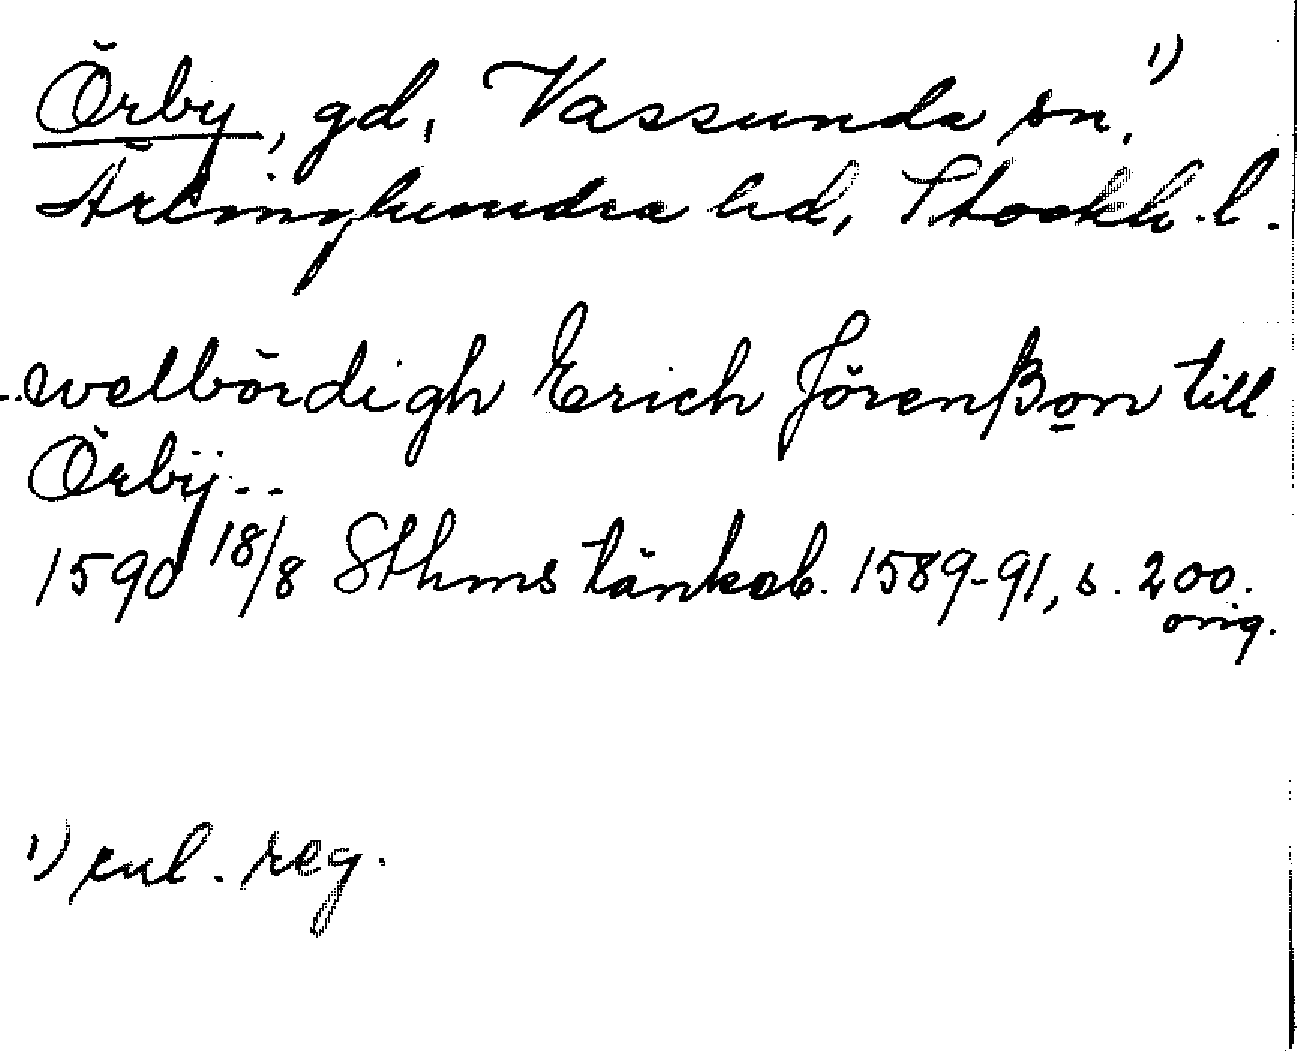 Örby, gd, Vassunda sn, 1)
Ärlinghundra hd, Stockh. l.
..welbördigh Erich Jörenßon till
Örbÿ..
1590 18/8 Sthms tänkeb. 1589-91, s. 200.
orig.
1) enl. reg.